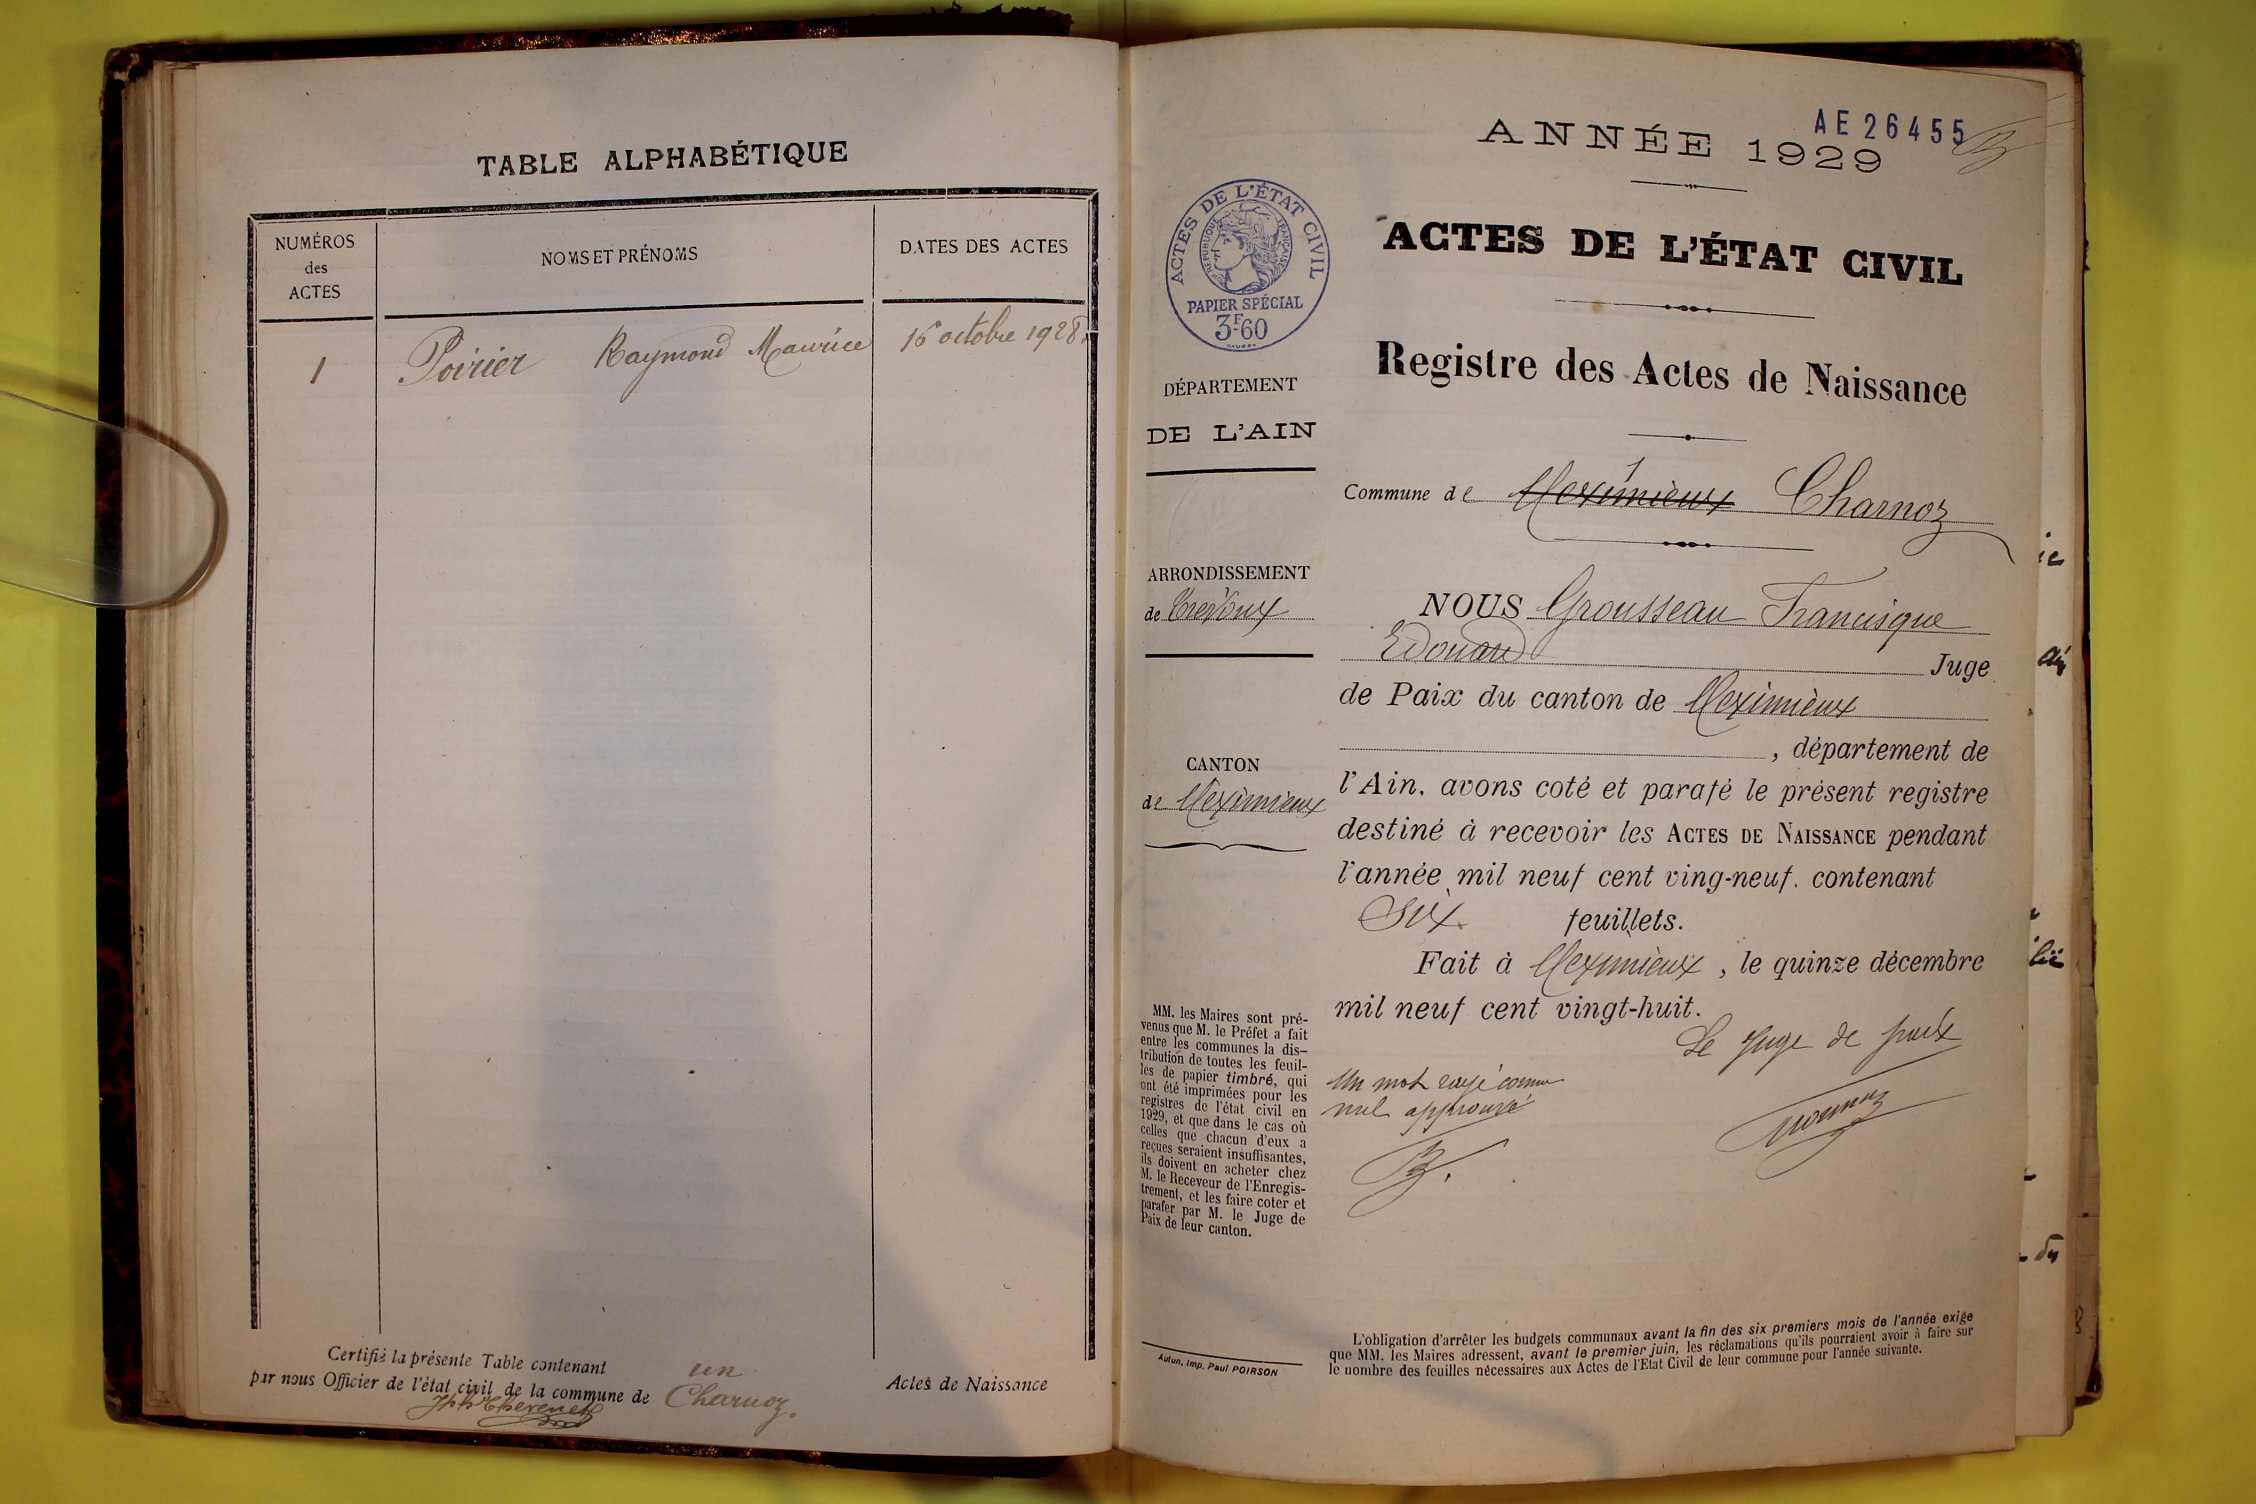 TABLE ALPHABÉTIQUE
NUMÉROS
des
ACTES
NOMS ET PRÉNOMS
DATES DES ACTES
1 Poirier Raymond Maurice 16 octobre 1928.
Certifié la présente Table contenant un Actes de Naissance
par nous Officier de l'état civil de la commune de Charnoz.
AE 26455
ANNÉE 1929
ACTES DE L'ÉTAT CIVIL
RÉPUBLIQUE FRANÇAISE
PAPIER SPÉCIAL
3F60
ACTES DE L'ÉTAT CIVIL
Registre des Actes de Naissance
DÉPARTEMENT
DE L'AIN
Commune de Meximieux Charnoz
ARRONDISSEMENT
de Trévoux
CANTON
de Meximieux
NOUS Grousseau Francisque
Edouard Juge
de Paix du canton de Meximieux
, département de
l'Ain, avons coté et parafé le présent registre
destiné à recevoir les ACTES DE NAISSANCE pendant
l'année mil neuf cent ving-neuf. contenant
Six feuillets.
Fait à Meximieux, le quinze décembre
mil neuf cent vingt-huit.
Le Juge de paix
Un mot rayé comme
nul approuvé
MM. les Maires sont pré-
venus que M. le Préfet a fait
entre les communes la dis-
tribution de toutes les feuil-
les de papier timbré, qui
ont été imprimées pour les
registres de l'état civil en
1929, et que dans le cas où
celles que chacun d'eux a
reçues seraient insuffisantes,
ils doivent en acheter chez
M. le Receveur de l'Enregis-
trement, et les faire coter et
parafer par M. le Juge de
Paix de leur canton.
Autun, Imp. Paul POIRSON
L'obligation d'arrêter les budgets communaux avant la fin des six premiers mois de l'année exige
que MM. les Maires adressent, avant le premier juin, les réclamations qu'ils pourraient avoir à faire sur
le nombre des feuilles nécessaires aux Actes de l'Etat Civil de leur commune pour l'année suivante.